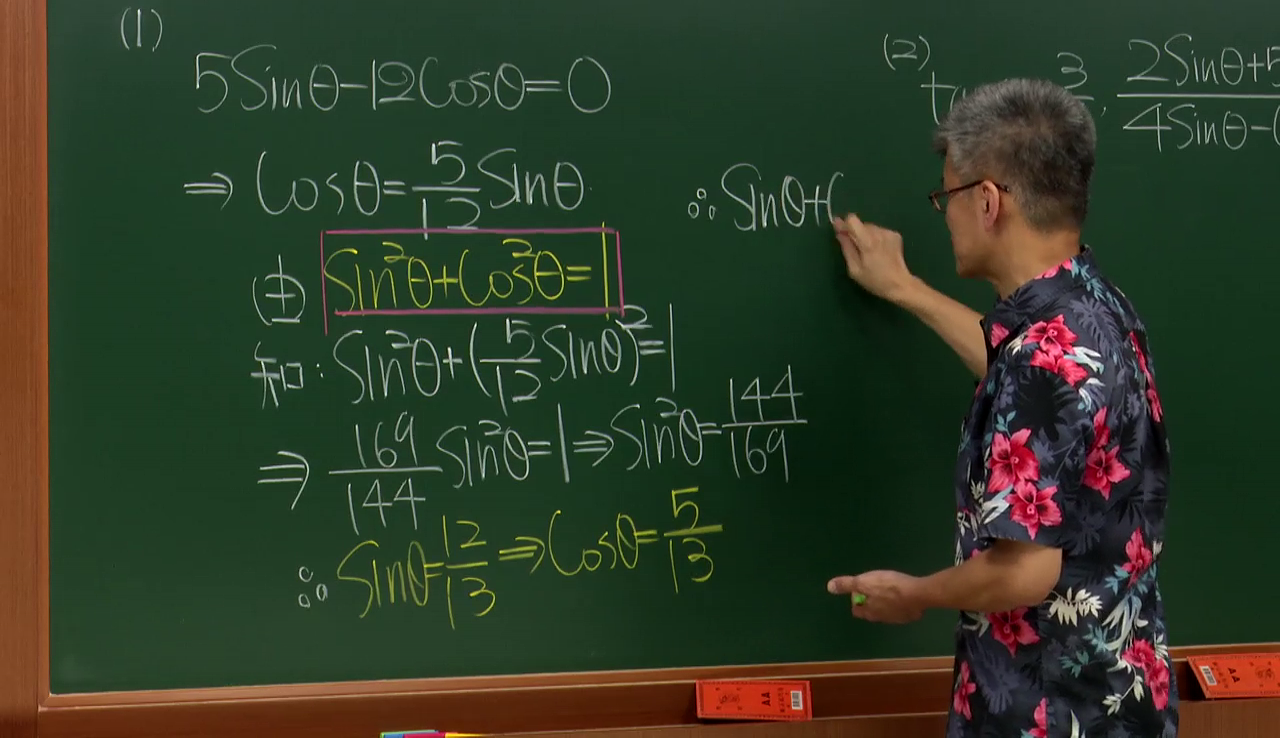 (1)
5Sinθ-12Cosθ=0
⇒ Cosθ=5/12 Sinθ
由 Sin²θ+Cos²θ=1
知: Sin²θ+(5/12 Sinθ)²=1
⇒ 169/144 Sin²θ=1 ⇒ Sin²θ=144/169
∴ Sinθ=12/13 ⇒ Cosθ=5/13
∴ Sinθ+C
(2)
3
2Sinθ+5
4Sinθ-
AA